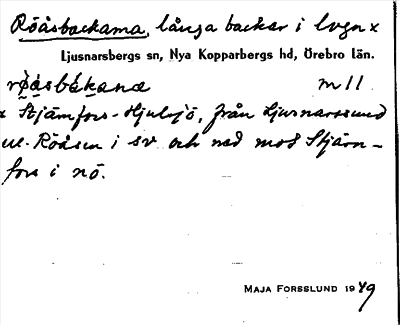 Rösåsbackarna, långa backar i lvgn x
Ljusnarsbergs sn, Nya Kopparbergs hd, Örebro län.
m 11
x Stjärnfors - Hjulsjö, från Ljusnarssund
Röåsen i sv och ned mot Stjärn-
fors i nö.
MAJA FORSSLUND 1949